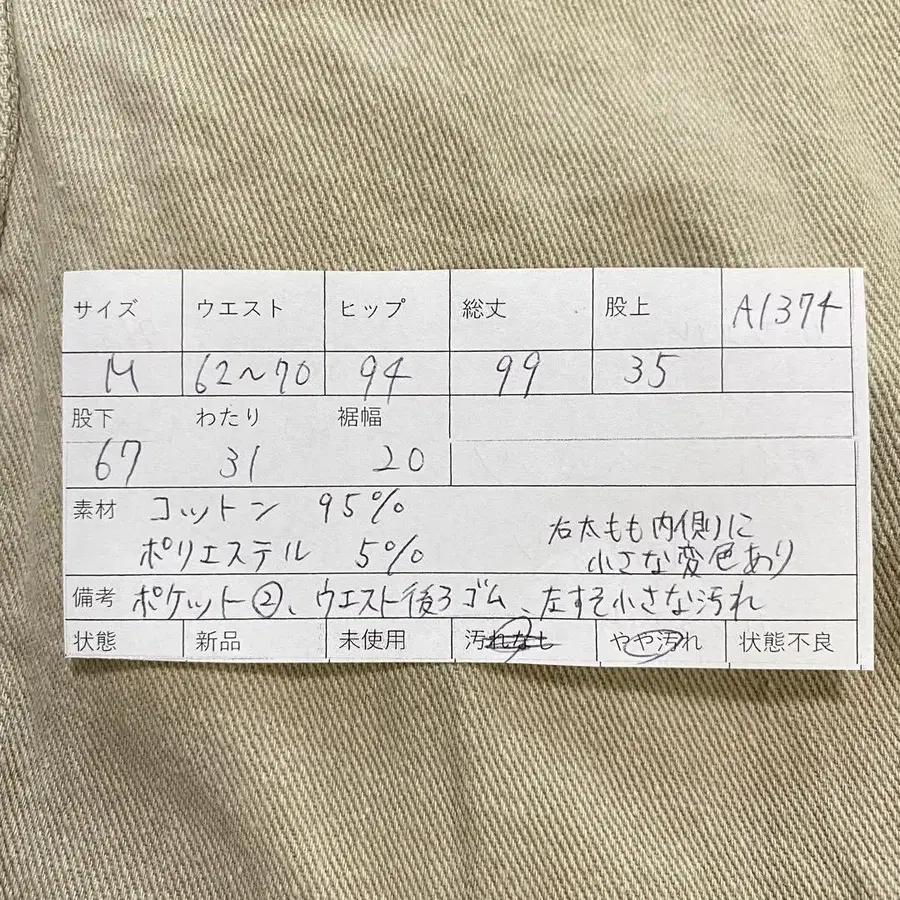 サイズ ウエスト ヒップ 総丈 股上 A1374
M 62〜70 94 99 35
股下 わたり 裾幅
67 31 20
素材 コットン 95%
ポリエステル 5%
右太もも内側に
小さな変色あり
備考 ポケット②、ウエスト後ろゴム、左すそ小さな汚れ
状態 新品 未使用 汚れなし やや汚れ 状態不良